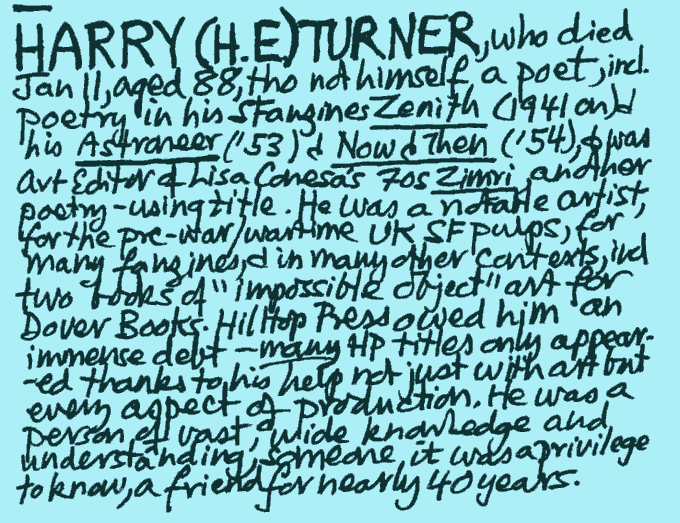 HARRY (H.E) TURNER, who died
Jan 11, aged 88, tho not himself a poet, incl.
poetry in his SFangines Zenith (1941 on) d
his Astraneer ('53) d Now d Then ('54), d was
Art Editor of Lisa Conesa's 70s Zimri, another
poetry-using title. He was a notable artist,
for the pre-war/wartime UK SF pulps, for
many fanzines, d in many other contexts, incl
two books of "impossible object" art for
Dover Books. Hilltop Press owed him an
immense debt – many HP titles only appear-
-ed thanks to his help not just with art but
every aspect of production. He was a
person of vast, wide knowledge and
understanding, someone it was a privilege
to know, a friend for nearly 40 years.